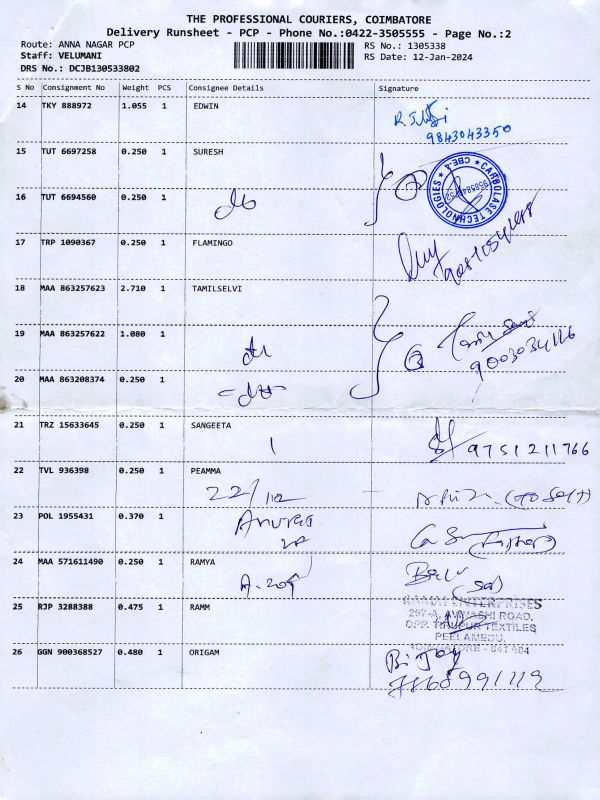 THE PROFESSIONAL COURIERS, COIMBATORE
Delivery Runsheet - PCP - Phone No.:0422-3505555 - Page No.:2
Route: ANNA NAGAR PCP RS No.: 1305338
Staff: VELUMANI RS Date: 12-Jan-2024
DRS No.: DCJB130533802
S No Consignment No Weight PCS Consignee Details Signature
14 TKY 888972 1.055 1 EDWIN
9843043350
15 TUT 6697258 0.250 1 SURESH
CARBOLASE TECHNOLOGIES CBE-4
16 TUT 6694560 0.250 1
17 TRP 1090367 0.250 1 FLAMINGO
18 MAA 863257623 2.710 1 TAMILSELVI
19 MAA 863257622 1.080 1
9003034126
20 MAA 863208374 0.250 1
21 TRZ 15633645 0.250 1 SANGEETA
9751211766
22 TVL 936398 0.250 1 PEAMMA
23 POL 1955431 0.370 1
24 MAA 571611490 0.250 1 RAMYA
25 RJP 3288388 0.475 1 RAMM
ENTERPRISES
297-A, AVINASHI ROAD,
OPP. TIRUPUR TEXTILES
PEELAMEDU,
COIMBATORE - 641 004
26 GGN 900368527 0.480 1 ORIGAM